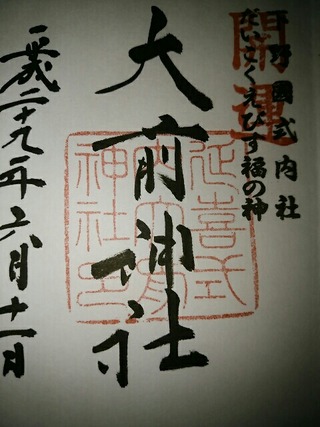 下野國式内社
開運
だいこくえびす福の神
大前神社
延喜式
内大前
神社印
平成二十九年六月十一日